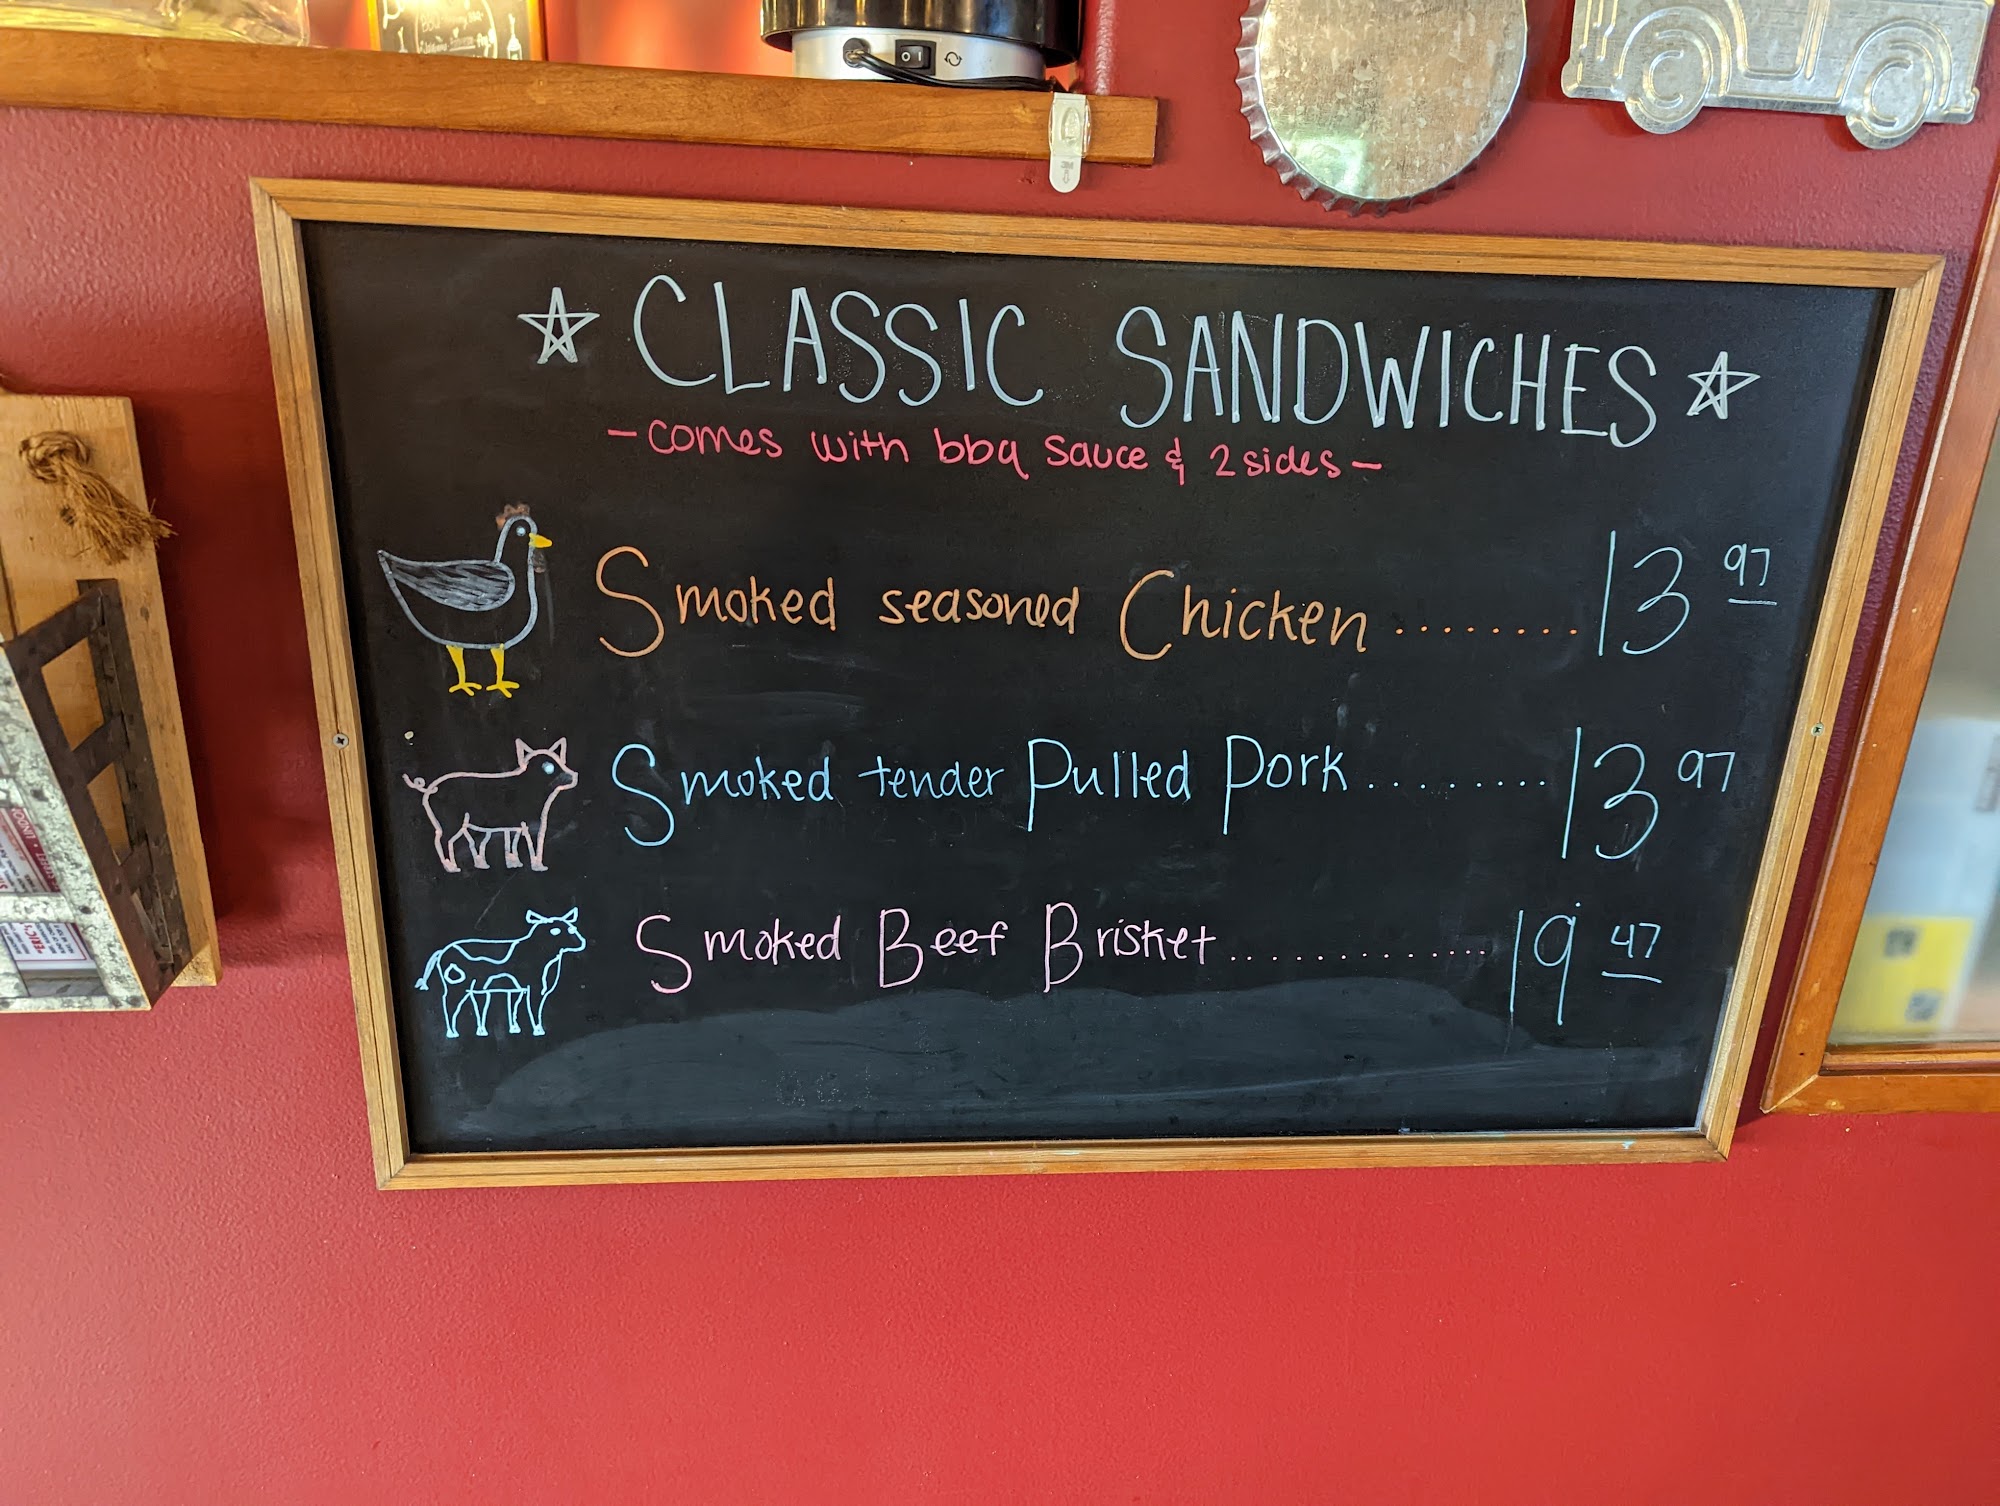 ☆ CLASSIC SANDWICHES ☆
- comes with bbq sauce & 2 sides -
Smoked seasoned Chicken ........ 13 97
Smoked tender Pulled Pork ........ 13 97
Smoked Beef Brisket ............. 19 47